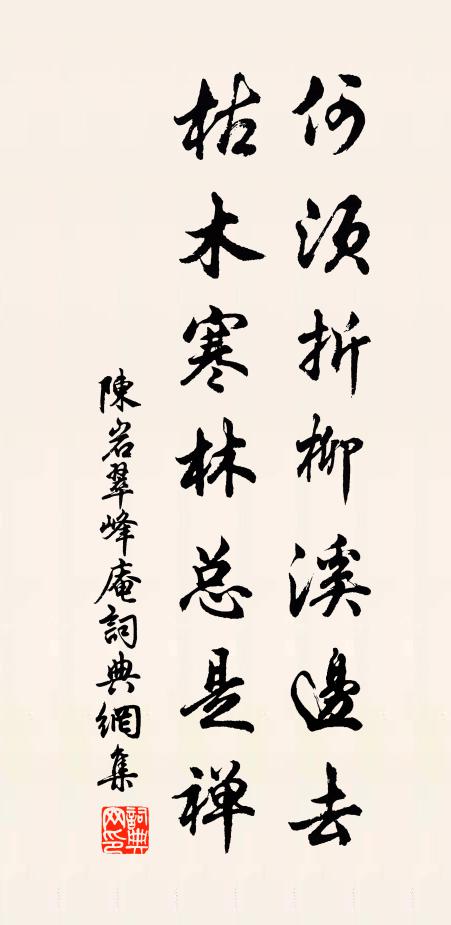 何須折柳溪邊去
枯木寒林总是禅
陳岩翠峰庵詞典網集
詞典网印